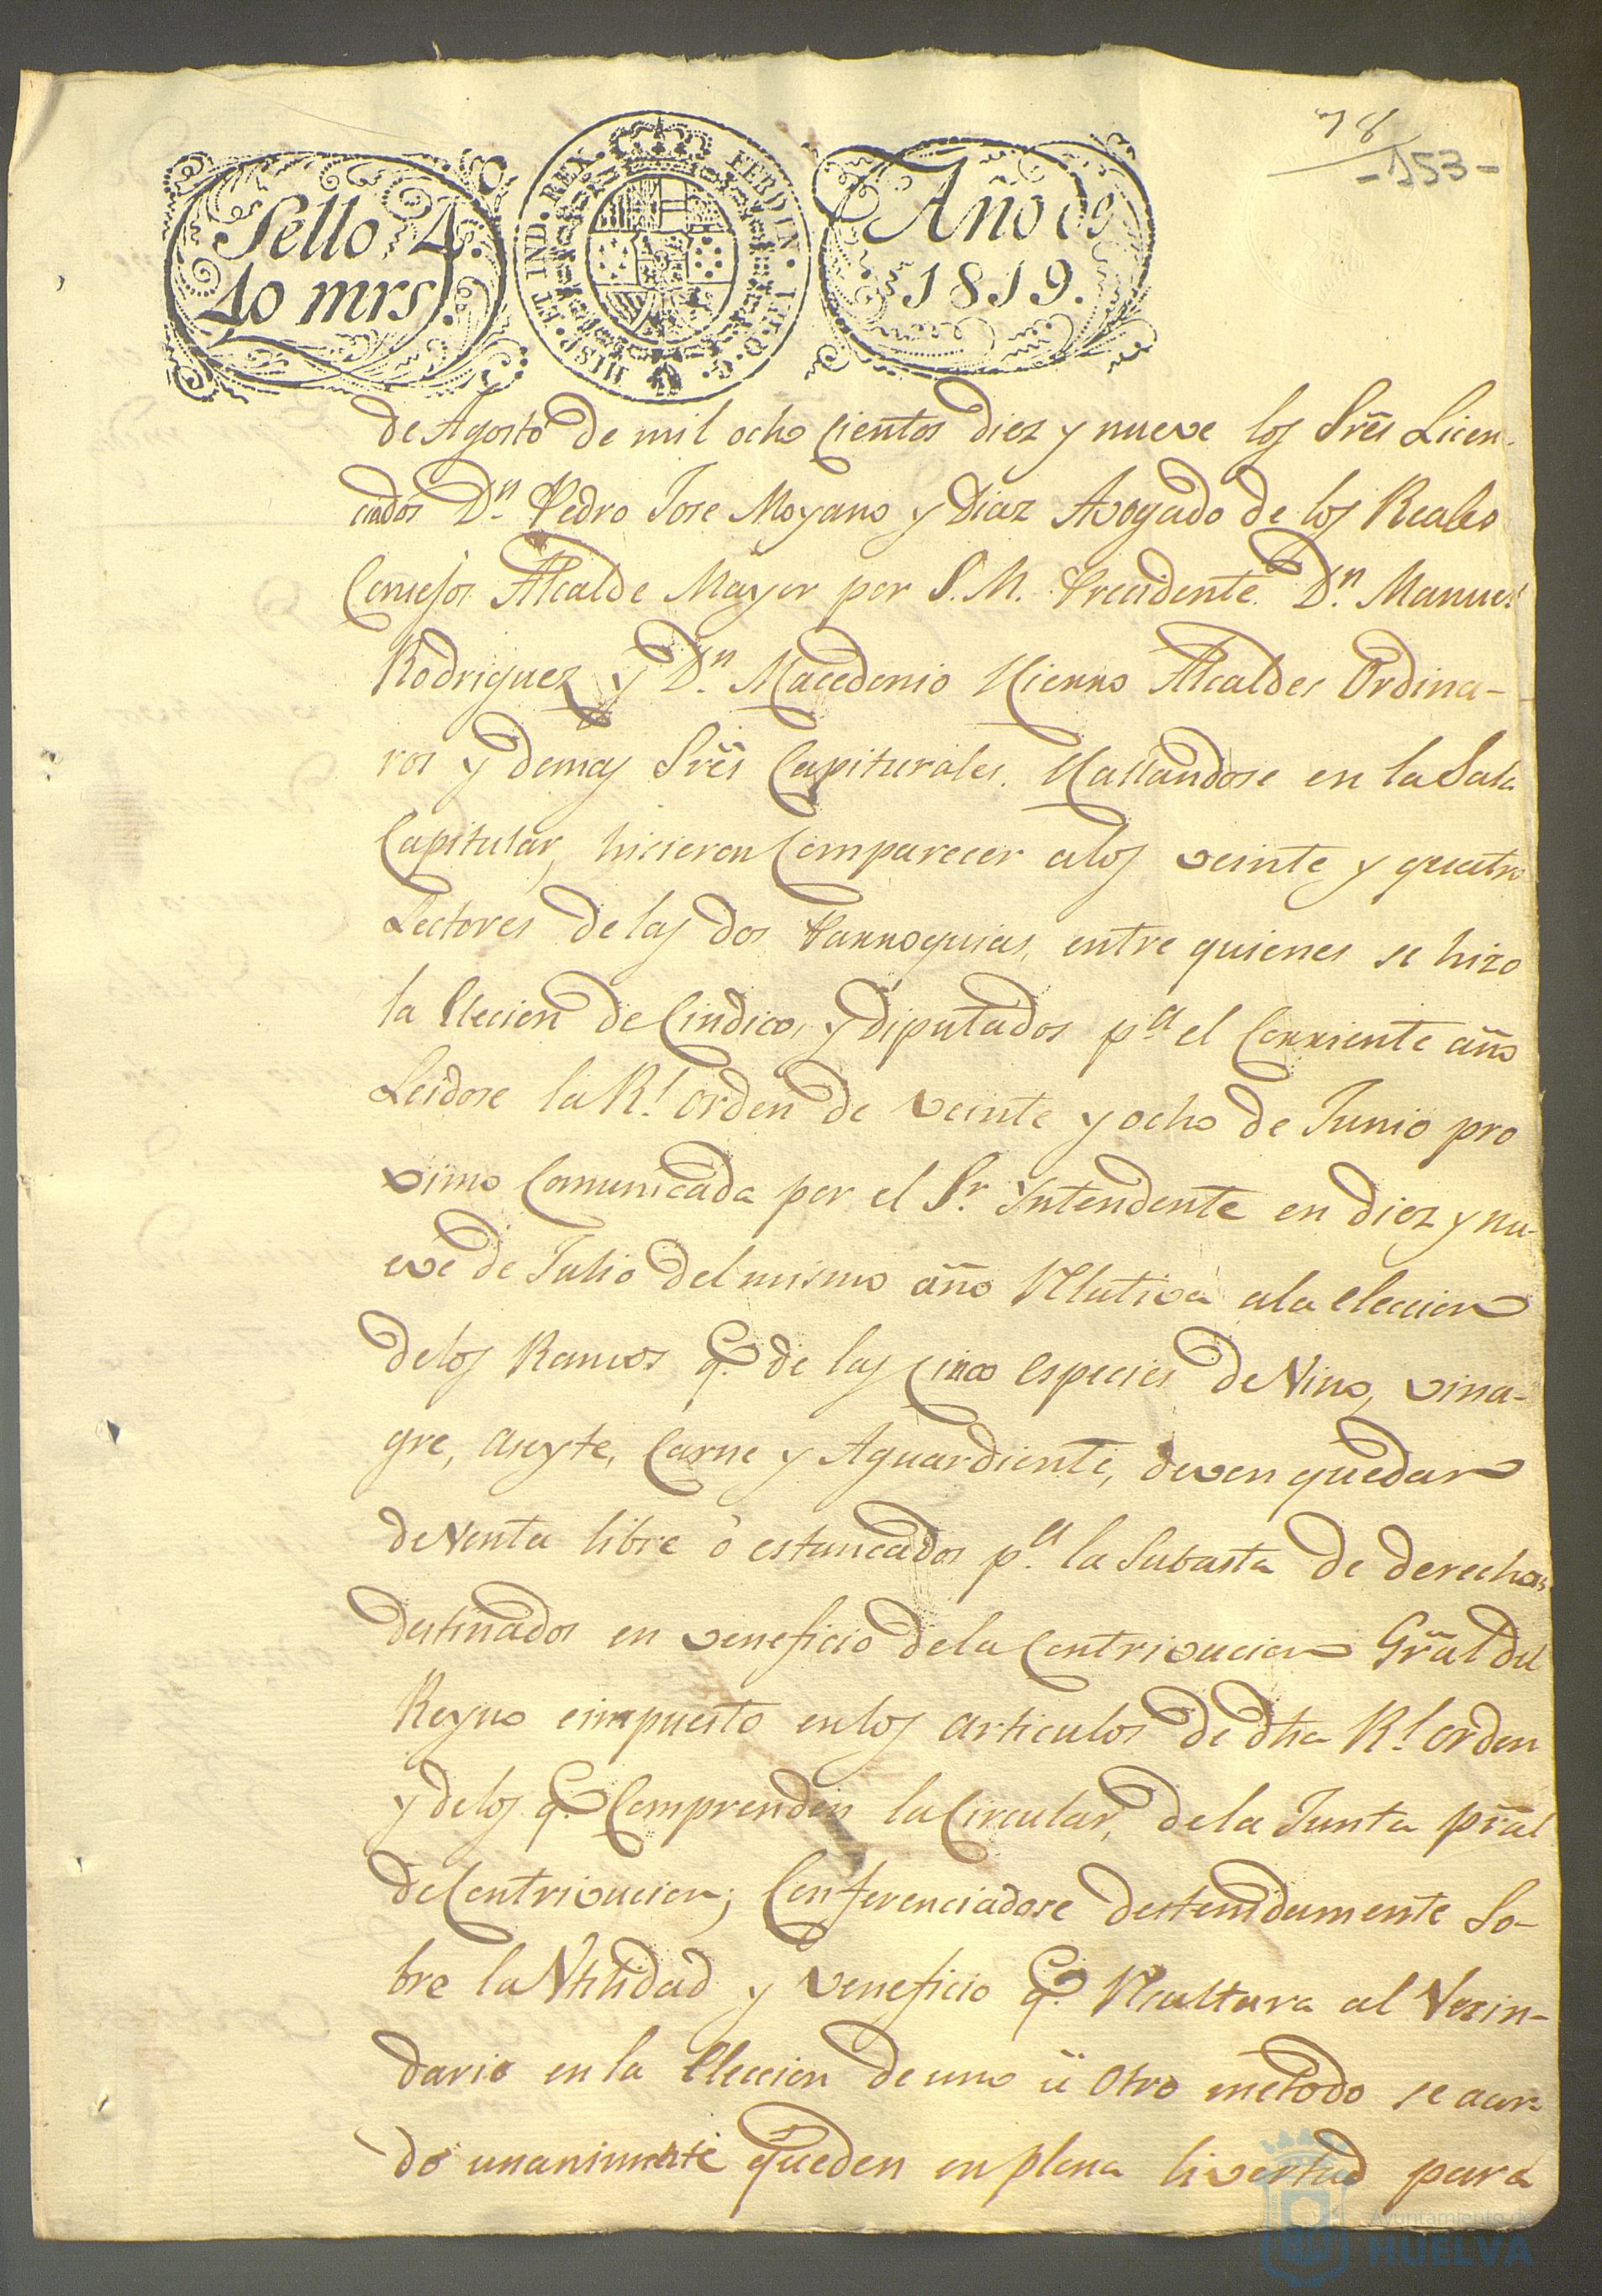 78
-153-
Sello 4.º
40 mrs.
HISP. ET IND. REX. FERDIN. VII. D. G.
Año de
1819.
de Agosto de mil ocho cientos diez y nueve los Sres Licen-
ciados Dn. Pedro Jose Moyano y Diaz Avogado de los Reales
Consejos Alcalde Mayor por S. M. Precidente Dn. Manuel
Rodriguez y Dn. Macedonio Hierro Alcaldes Ordina-
ros y demas Sres Capiturales. Hallandose en la Sala
Capitular, hicieron Comparecer alos veinte y quatro
Lectores de las dos Parroquias, entre quienes se hizo
la Elecion de Cindico, y diputados pa el Corriente año
Leidose la Rl. orden de veinte y ocho de Junio pro
ximo Comunicada por el Sr. Yntendente en diez y nu-
eve de Julio del mismo año Relativa ala eleccion
delos Ramos q. de las Cinco especies de Vino, vina-
gre, aseyte, Carne y Aguardiente, deven quedar
de Venta libre ó estancados pa. la Subasta de derechos
destinados en veneficio dela Contrivucion Gral del
Reyno eimpuesto enlos articulos de dha Rl. orden
y delos q. Comprenden la Circular, dela Junta pral
de Contrivucion; Conferenciadose destenidamente So-
bre la Utilidad y veneficio q. Resultara al Vecin-
dario en la Eleccion de uno ü Otro metodo se acor-
do unanimte queden en plena livertud para
Ayuntamiento de
HUELVA